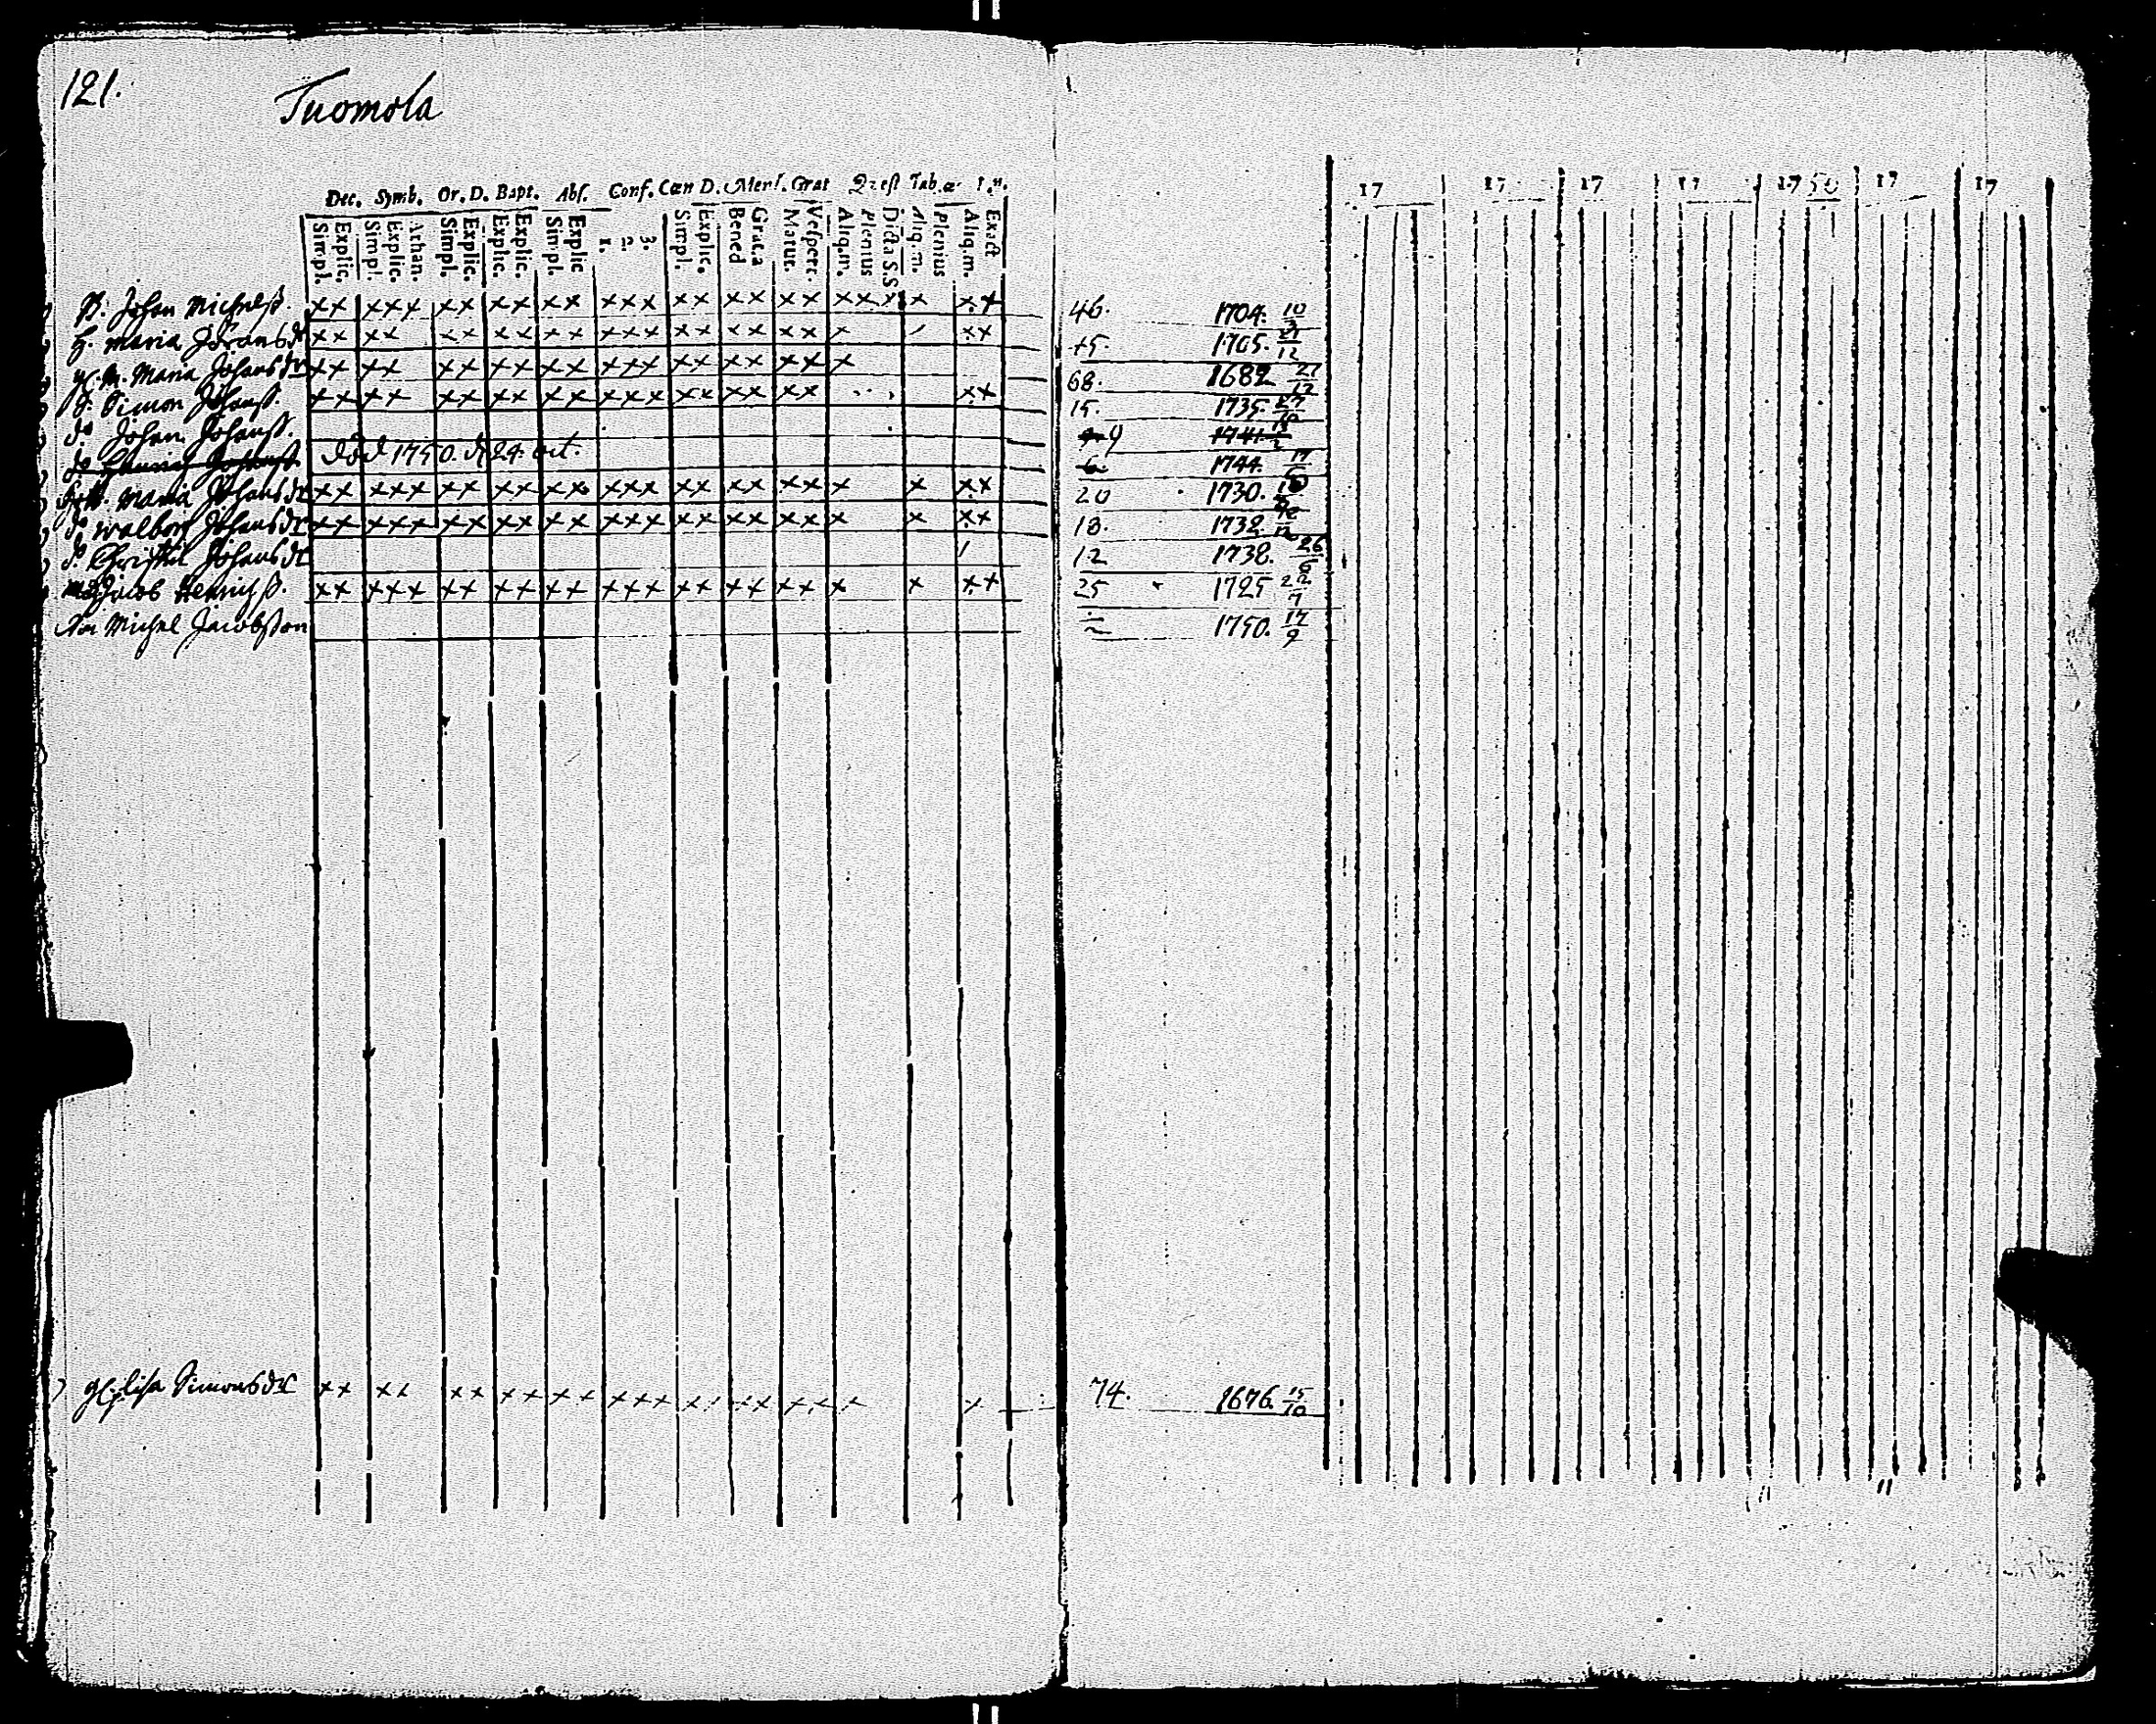 121.
Tuomola
Dec. Symb. Or. D. Bapt. Abs. Conf. Cœn D. Mens. Grat Quæst Tab. œ
Simpl. Explic. Simpl. Explic. Athan. Simpl. Explic. Explic. Explic. Simpl. Explic 1. 2. 3. Simpl. Explic. Bened Grat.a Matut. Vespert. Aliq.m. Plenius Dicta S.S. Aliq.m. Plenius Aliq.m. Exact
17 17 17 17 1750 17 17
B. Johan Michelsß. xx xxx xx xx xx xxx xx xx xx xxx x xx 46. 1704. 10/3
H. Maria Jöransdr xx xx xx xx xx xxx xx xx xx x / xx 45. 1705. 21/12
Maria Johansdr xx xx xx xx xx xxx xx xx xx x 68. 1682 27/12
S. Simon Johanß. xx xx xx xx xx xxx xx xx xx xx 15. 1735. 27/10
do Johan Johanß. 9 1741
do Henrich Johanß död 1750. d. 24. oct. 6 1744. 17/6
Maria Johansdr xx xxx xx xx xx xxx xx xx xx x x xx 20 1730.
do Walborg Johansdr xx xxx xx xx xx xxx xx xx xx x x xx 18. 1732
do Christin Johansdr / 12 1738. 26/6
Jacob Henrichß. xx xxx xx xx xx xxx xx xx xx x x xx 25 1725 22/7
Michel Jacobsson 1750. 17/9
Lisa Simonsdr xx xx xx xx xx xxx xx xx xx x x 74. 1676. 15/10